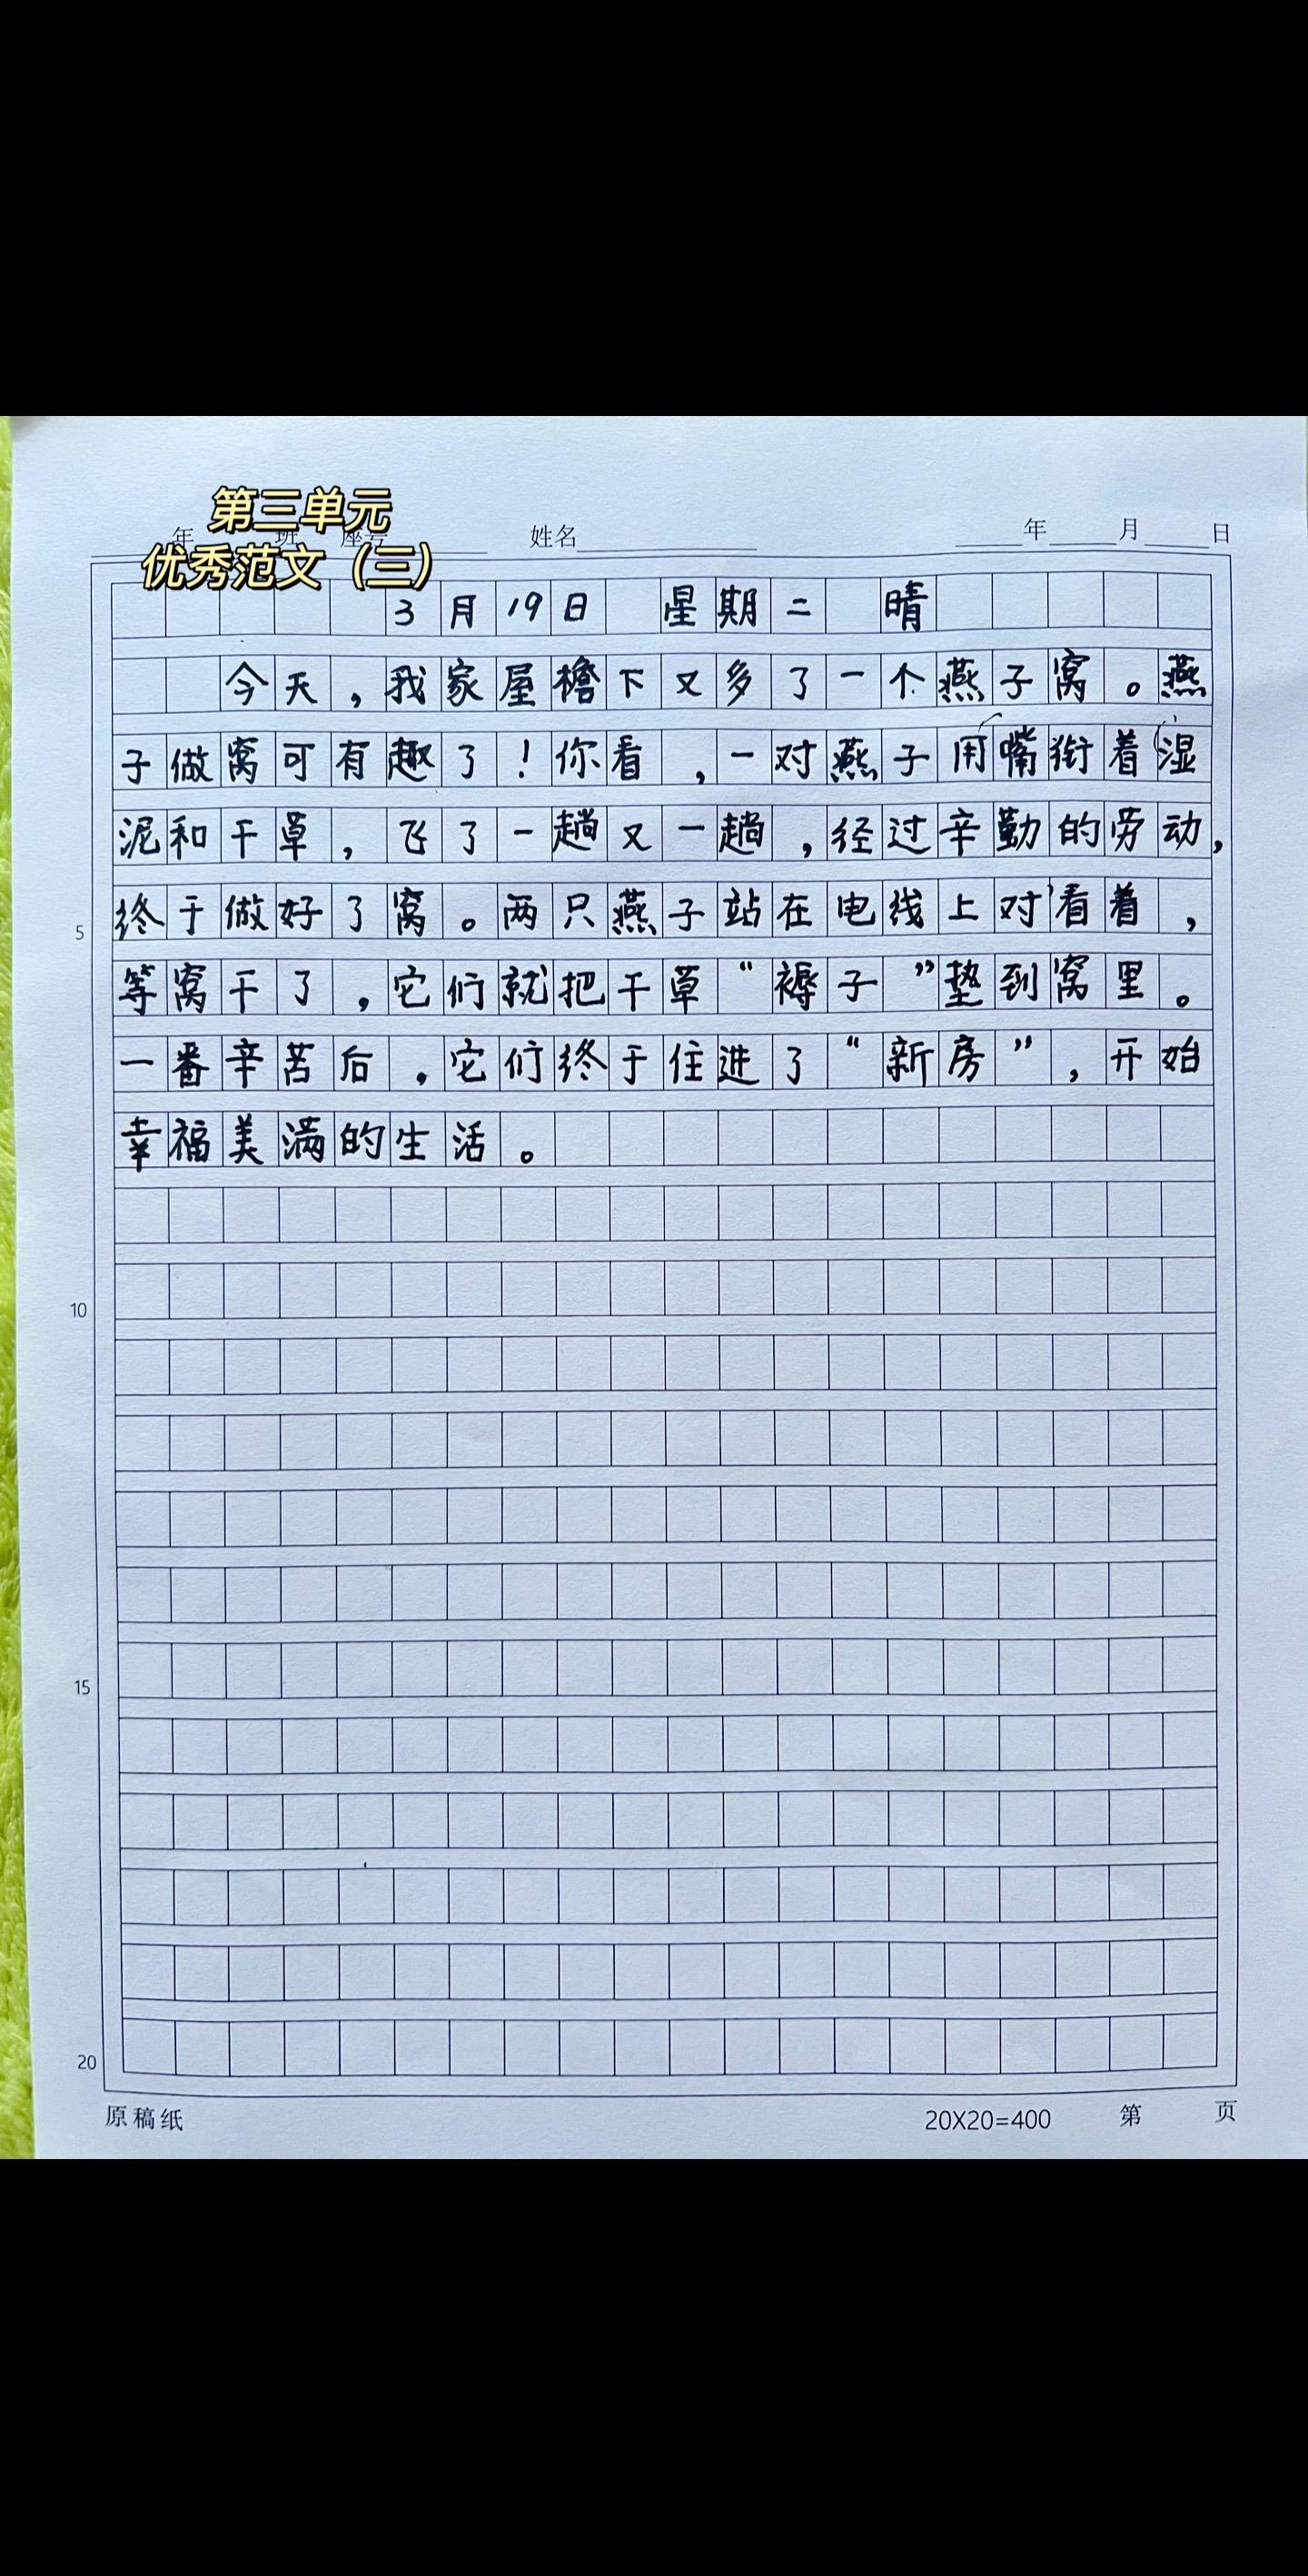 第三单元
优秀范文（三）
年 班 座号 姓名 年 月 日
3月19日 星期二 晴
今天，我家屋檐下又多了一个燕子窝。燕
子做窝可有趣了！你看，一对燕子用嘴衔着湿
泥和干草，飞了一趟又一趟，经过辛勤的劳动，
终于做好了窝。两只燕子站在电线上对看着，
5
等窝干了，它们就把干草“褥子”垫到窝里。
一番辛苦后，它们终于住进了“新房”，开始
幸福美满的生活。
10
15
20
原稿纸 20X20=400 第 页